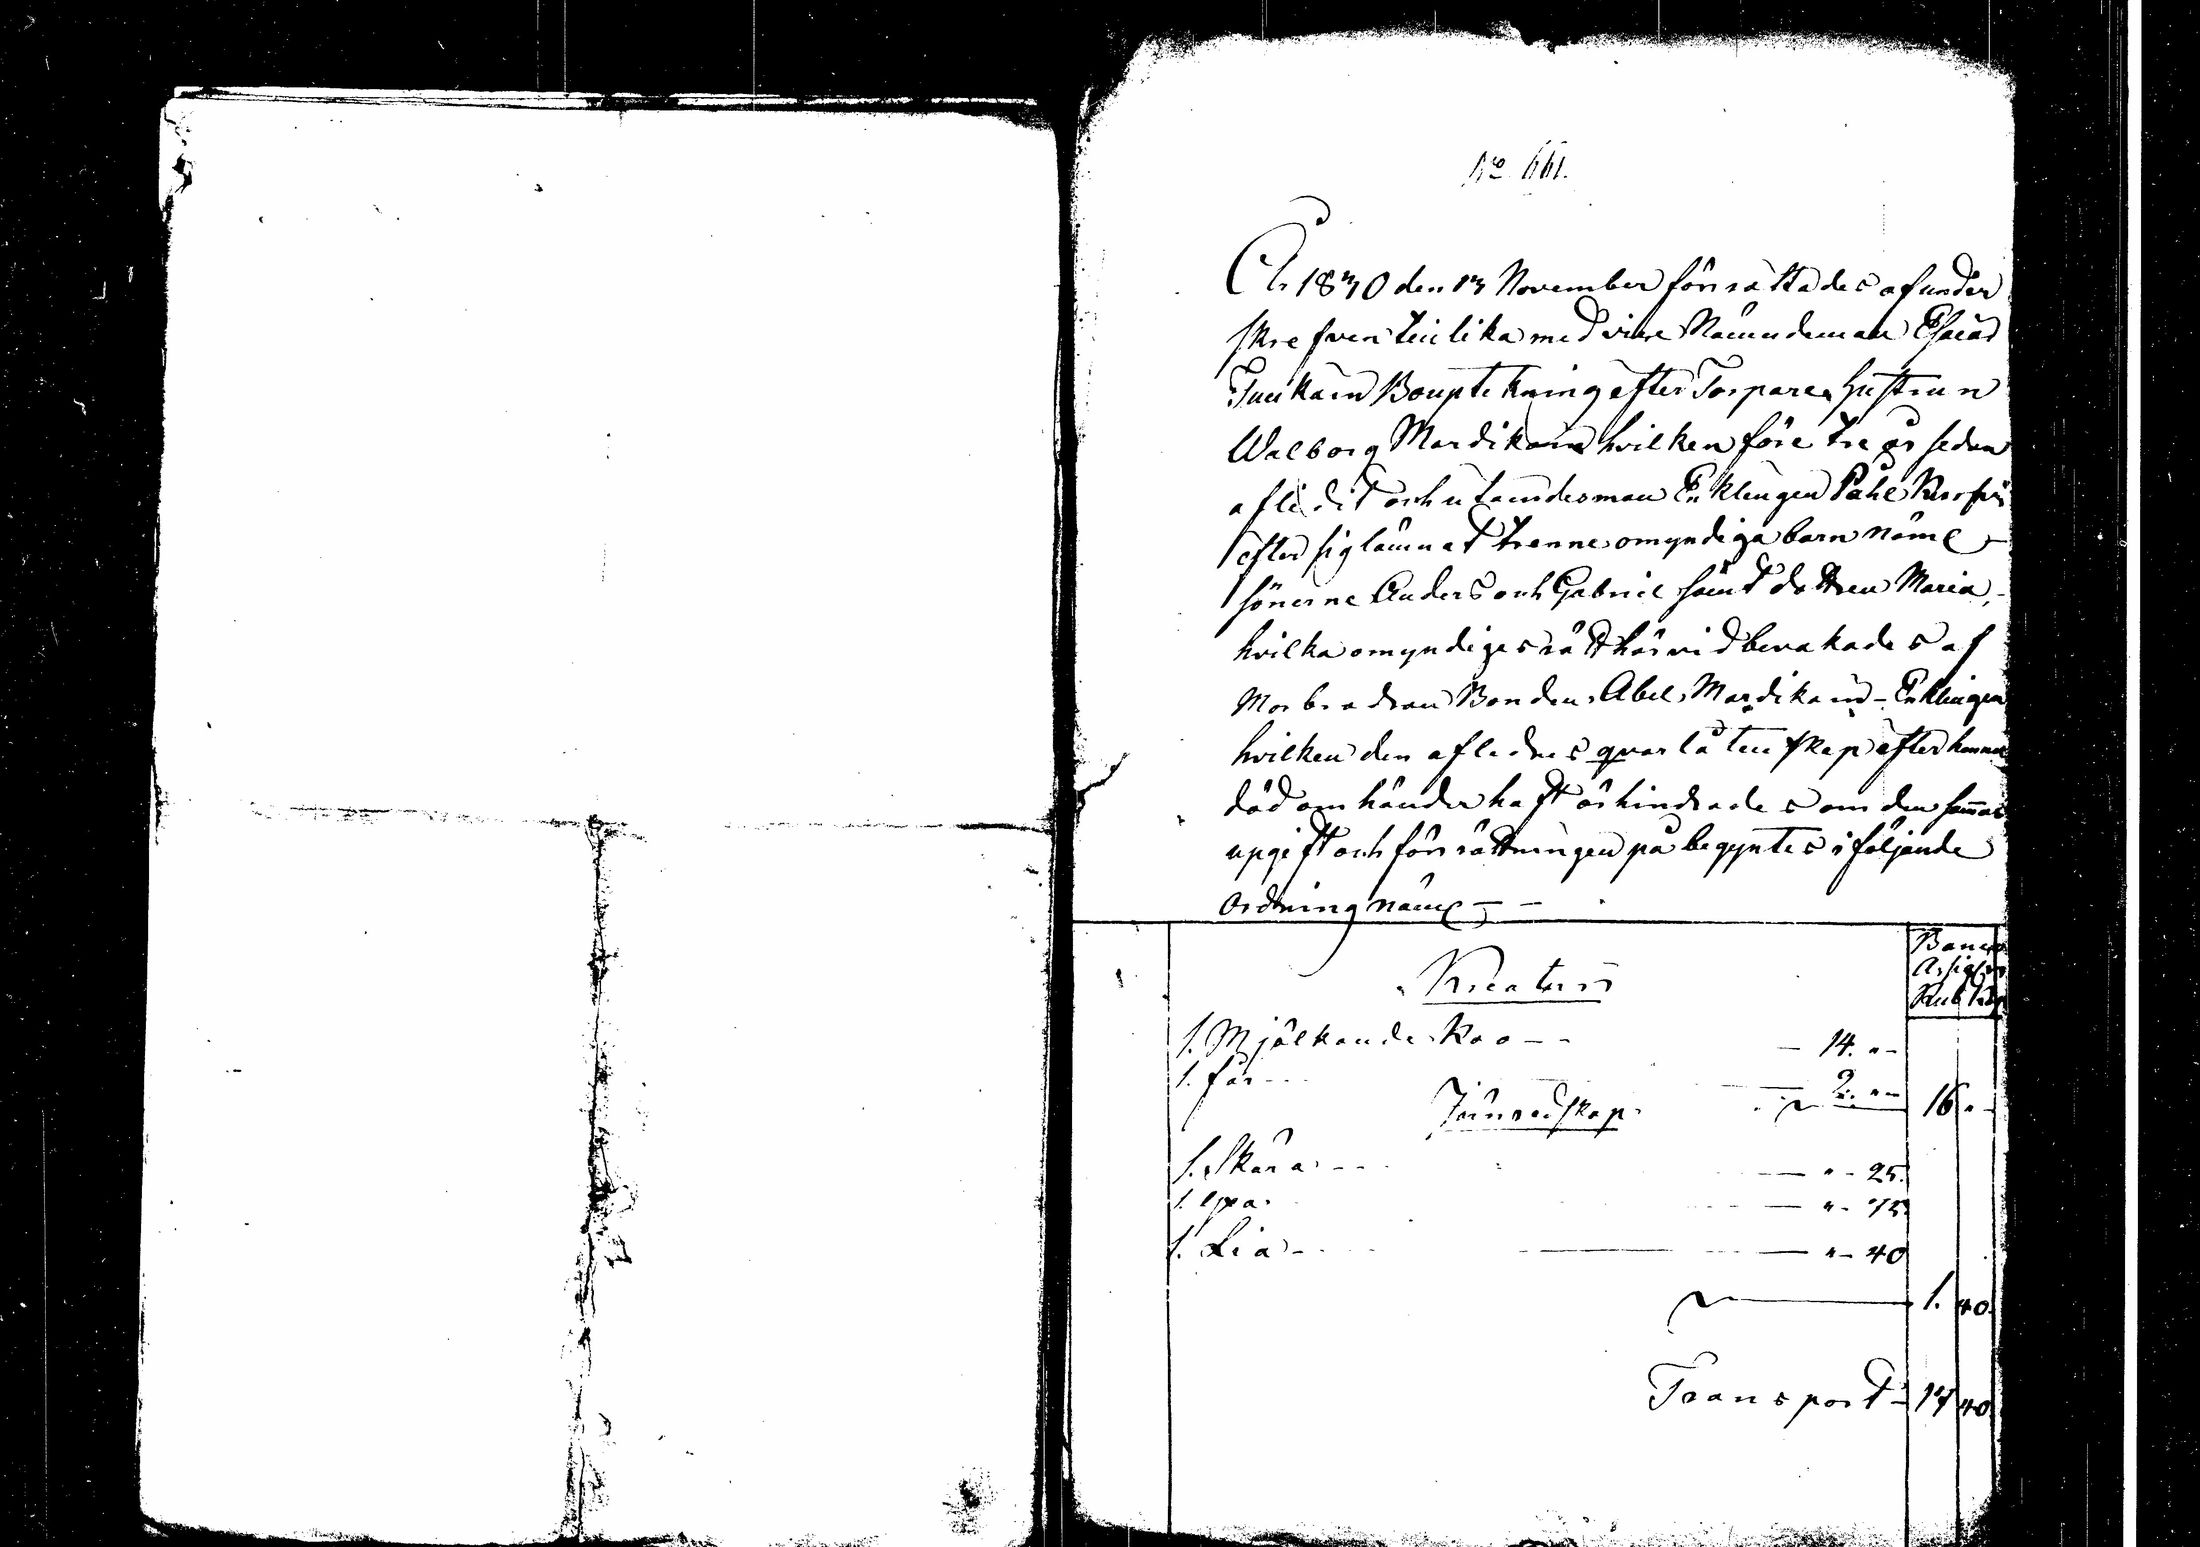 No 661.
År 1830 den 13 November förrättades af under
skrefven tillika med vice Nämndeman Esaias
Bouptekning efter Torpare hustrun
Walborg Mardikain hvilken före tre år sedan
aflidit och utom des man Enklingen Påhl
efter sig lämnat trenne omyndiga barn näml
sönerne Anders och Gabriel samt dottren Maria,
hvilka omyndiges rätt härvid bevakades af
Morbrodran Bonden Abel Mardikain - Enklingen
hvilken den aflednes qvarlåtenskap efter hennes
död om händer haft om den sammas
upgift och förrättningen på begyntes i följande
Ordning näml
Banco
Assign
Rub Kop
Kreatur
1. Mjölkande Koo - - 14. " -
1. får - - 2. " -
16 " -
Järnredskap
1. Skära - - " - 25.
1. yxa - " - 75.
1. Lia - " - 40
1. 40.
Transport - 17 40